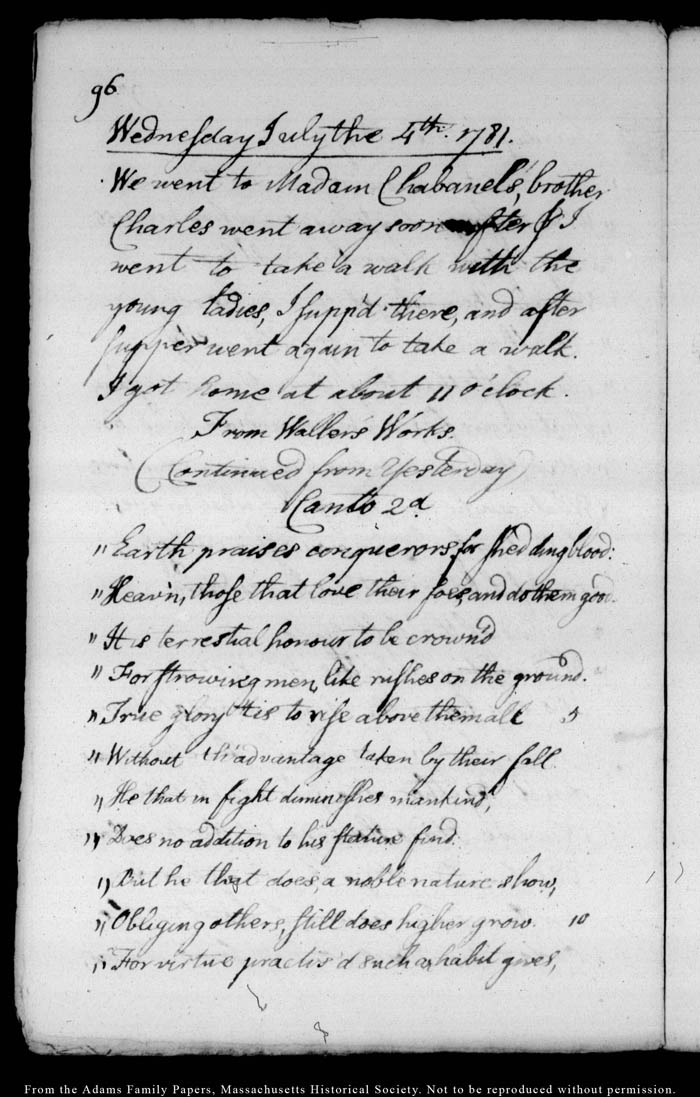 96
Wednesday July the 4th. 1781.
We went to Madam Chabanel's, brother
Charles went away soon after & I
went to take a walk with the
young ladies, I supp'd there, and after
supper went again to take a walk.
I got home at about 11 o'clock.
From Waller's Works.
(Continued from Yesterday)
Canto 2d.
" Earth praises conquerors for shedding blood:
" Heav'n, those that love their foes, and do them good.
" It is terrestial honour to be crown'd
" For strowing men, like rushes on the ground.
" True glory 'tis to rise above them all 5
" Without th'advantage taken by their fall
" He that in fight diminishes mankind,
" Does no addition to his stature find.
" But he that does, a noble nature show,
" Obliging others, still does higher grow. 10
" For virtue practis'd such a habit gives,
From the Adams Family Papers, Massachusetts Historical Society. Not to be reproduced without permission.